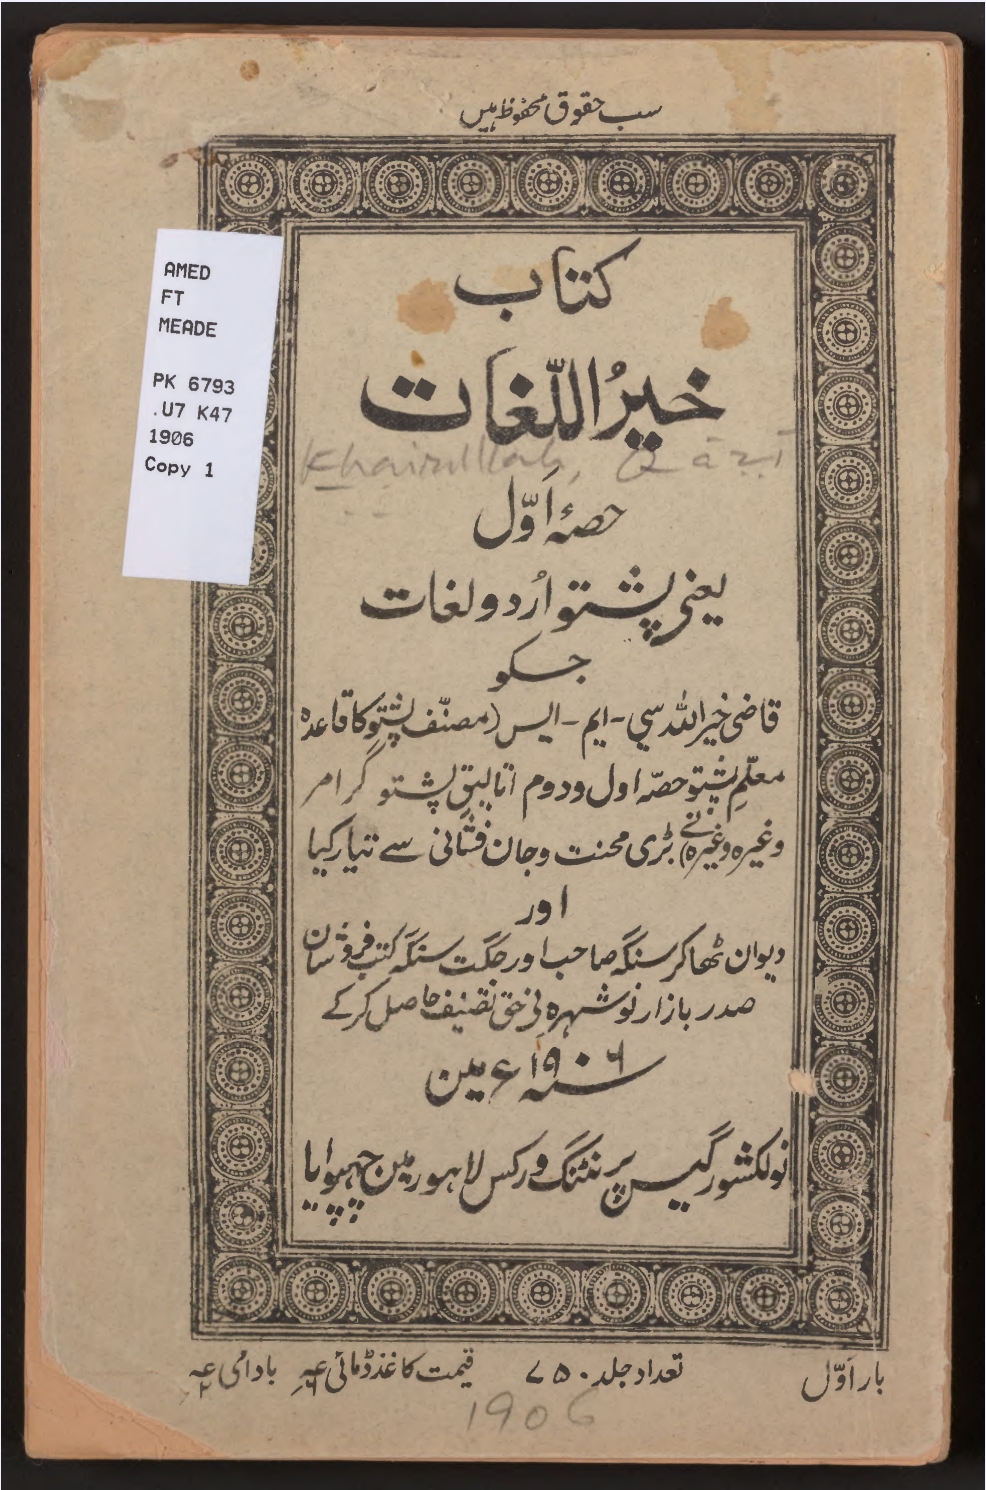 سب حقوق محفوظ ہیں
AMED
FT
MEADE
PK 6793
.U7 K47
1906
Copy 1
کتاب
خیرُ اللّغات
Khairullah, Qazi
حصۂ اَوّل
یعنی پشتو اُردو لغات
جسکو
قاضی خیر اللہ سی - ایم - ایس (مصنّف پشتو کا قاعدہ
معلّمِ پشتو حصّہ اول و دوم اتالیقِ پشتو گرامر
وغیرہ وغیرہ) نے بڑی محنت و جان فشانی سے تیار کیا
اور
دیوان ٹھاکر سنگہ صاحب اور جگت سنگہ کتب فروشان
صدر بازار نوشہرہ نی حق تصنیف حاصل کر کے
سنہ ۱۹۰۶ء مین
نولکشور گیس پرنٹنگ ورکس لاہور مین چھپوایا
بار اَوّل
تعداد جلد ۷۵۰
قیمت کاغذ ڈمائی
بادامی
1906